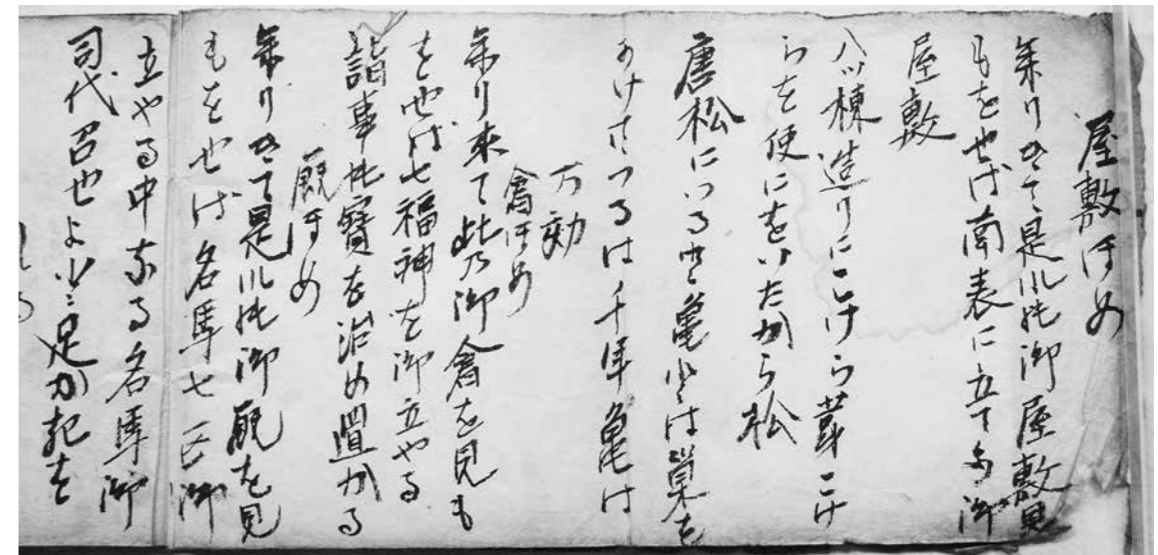 屋敷ほめ
参りきて是の御屋敷見
もをせば南表に立てる御
屋敷
八ツ棟造りにこけら葺こけ
らを便にをいたから松
唐松にいる亀は巣を
かけはつるは千年亀は
万劫
倉ほめ
参り来て此乃御倉を見も
を世ば七福神を御立やる
詣事此寳を治め置かる
厩ほめ
参りきて是の御厩を見
もをせば名馬七匹御
立やる中なる名馬御
司代召せよ 足か記を